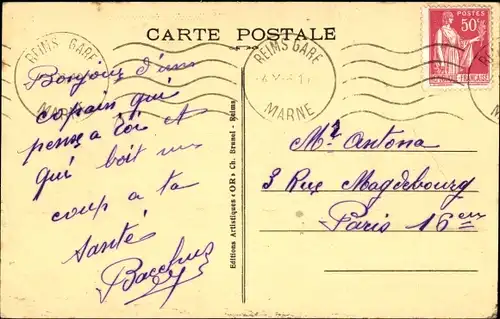 CARTE POSTALE
REIMS GARE
MARNE
REIMS GARE
MARNE
POSTES
50c
Bonjour d'un
copain qui
pense a toi et
qui boit un
coup a ta
santé
Bacchus
Editions Artistiques « OR » Ch. Brunel - Reims
Mr Antona
3 Rue Magdebourg
Paris 16em